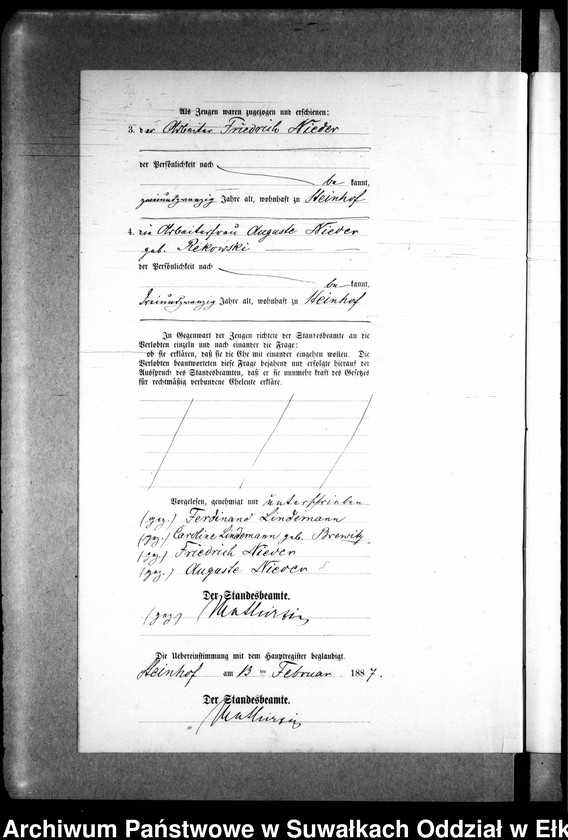 Als Zeugen waren zugezogen und erschienen:
3. der Arbeiter Friedrich Nieder
der Persönlichkeit nach
be kannt,
zweiundzwanzig Jahre alt, wohnhaft zu Steinhof
4. die Arbeiterfrau Auguste Nieder
geb. Rekowski
der Persönlichkeit nach
be kannt,
dreiundzwanzig Jahre alt, wohnhaft zu Steinhof
In Gegenwart der Zeugen richtete der Standesbeamte an die
Verlobten einzeln und nach einander die Frage:
ob sie erklären, daß sie die Ehe mit einander eingehen wollen. Die
Verlobten beantworteten diese Frage bejahend und erfolgte hierauf der
Ausspruch des Standesbeamten, daß er sie nunmehr kraft des Gesetzes
für rechtmäßig verbundene Eheleute erkläre.
Vorgelesen, genehmigt und unterschrieben
(gez.) Ferdinand Lindemann
(gez.) Caroline Lindemann geb. Brewitz.
(gez.) Friedrich Nieder
(gez.) Auguste Nieder
Der Standesbeamte.
(gez)
Die Uebereinstimmung mit dem Hauptregister beglaubigt.
Steinhof am 13 ten Februar 1887.
Der Standesbeamte.
Archiwum Państwowe w Suwałkach Oddział w Ełk